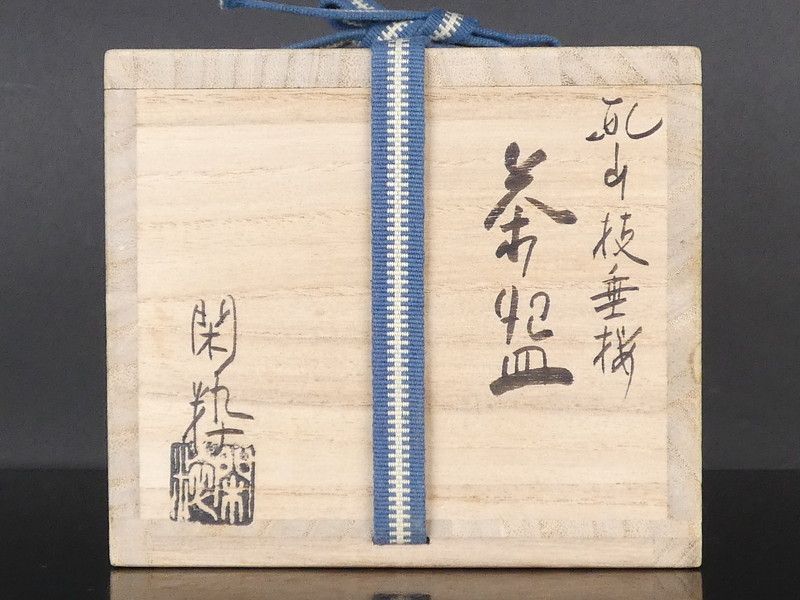 山枝垂桜
茶盌
閑粋